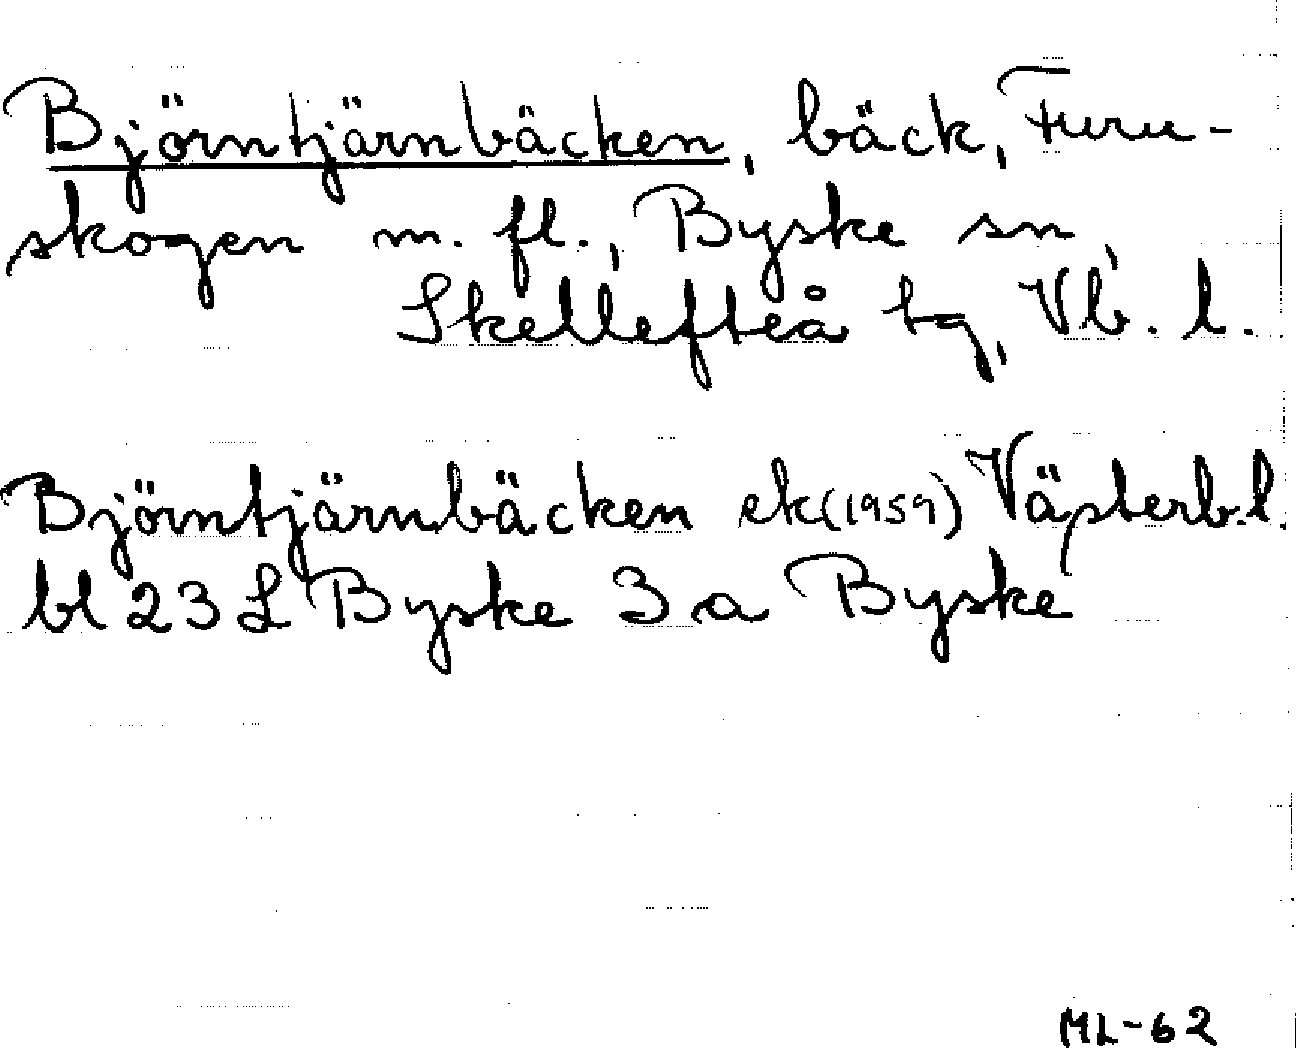 Björntjärnbäcken, bäck, Furu-
skogen m. fl., Byske sn,
Skellefteå tg, Vb. l.
Björntjärnbäcken ek(1959) Västerb.l.
bl 23 L Byske 3 a Byske
ML-62